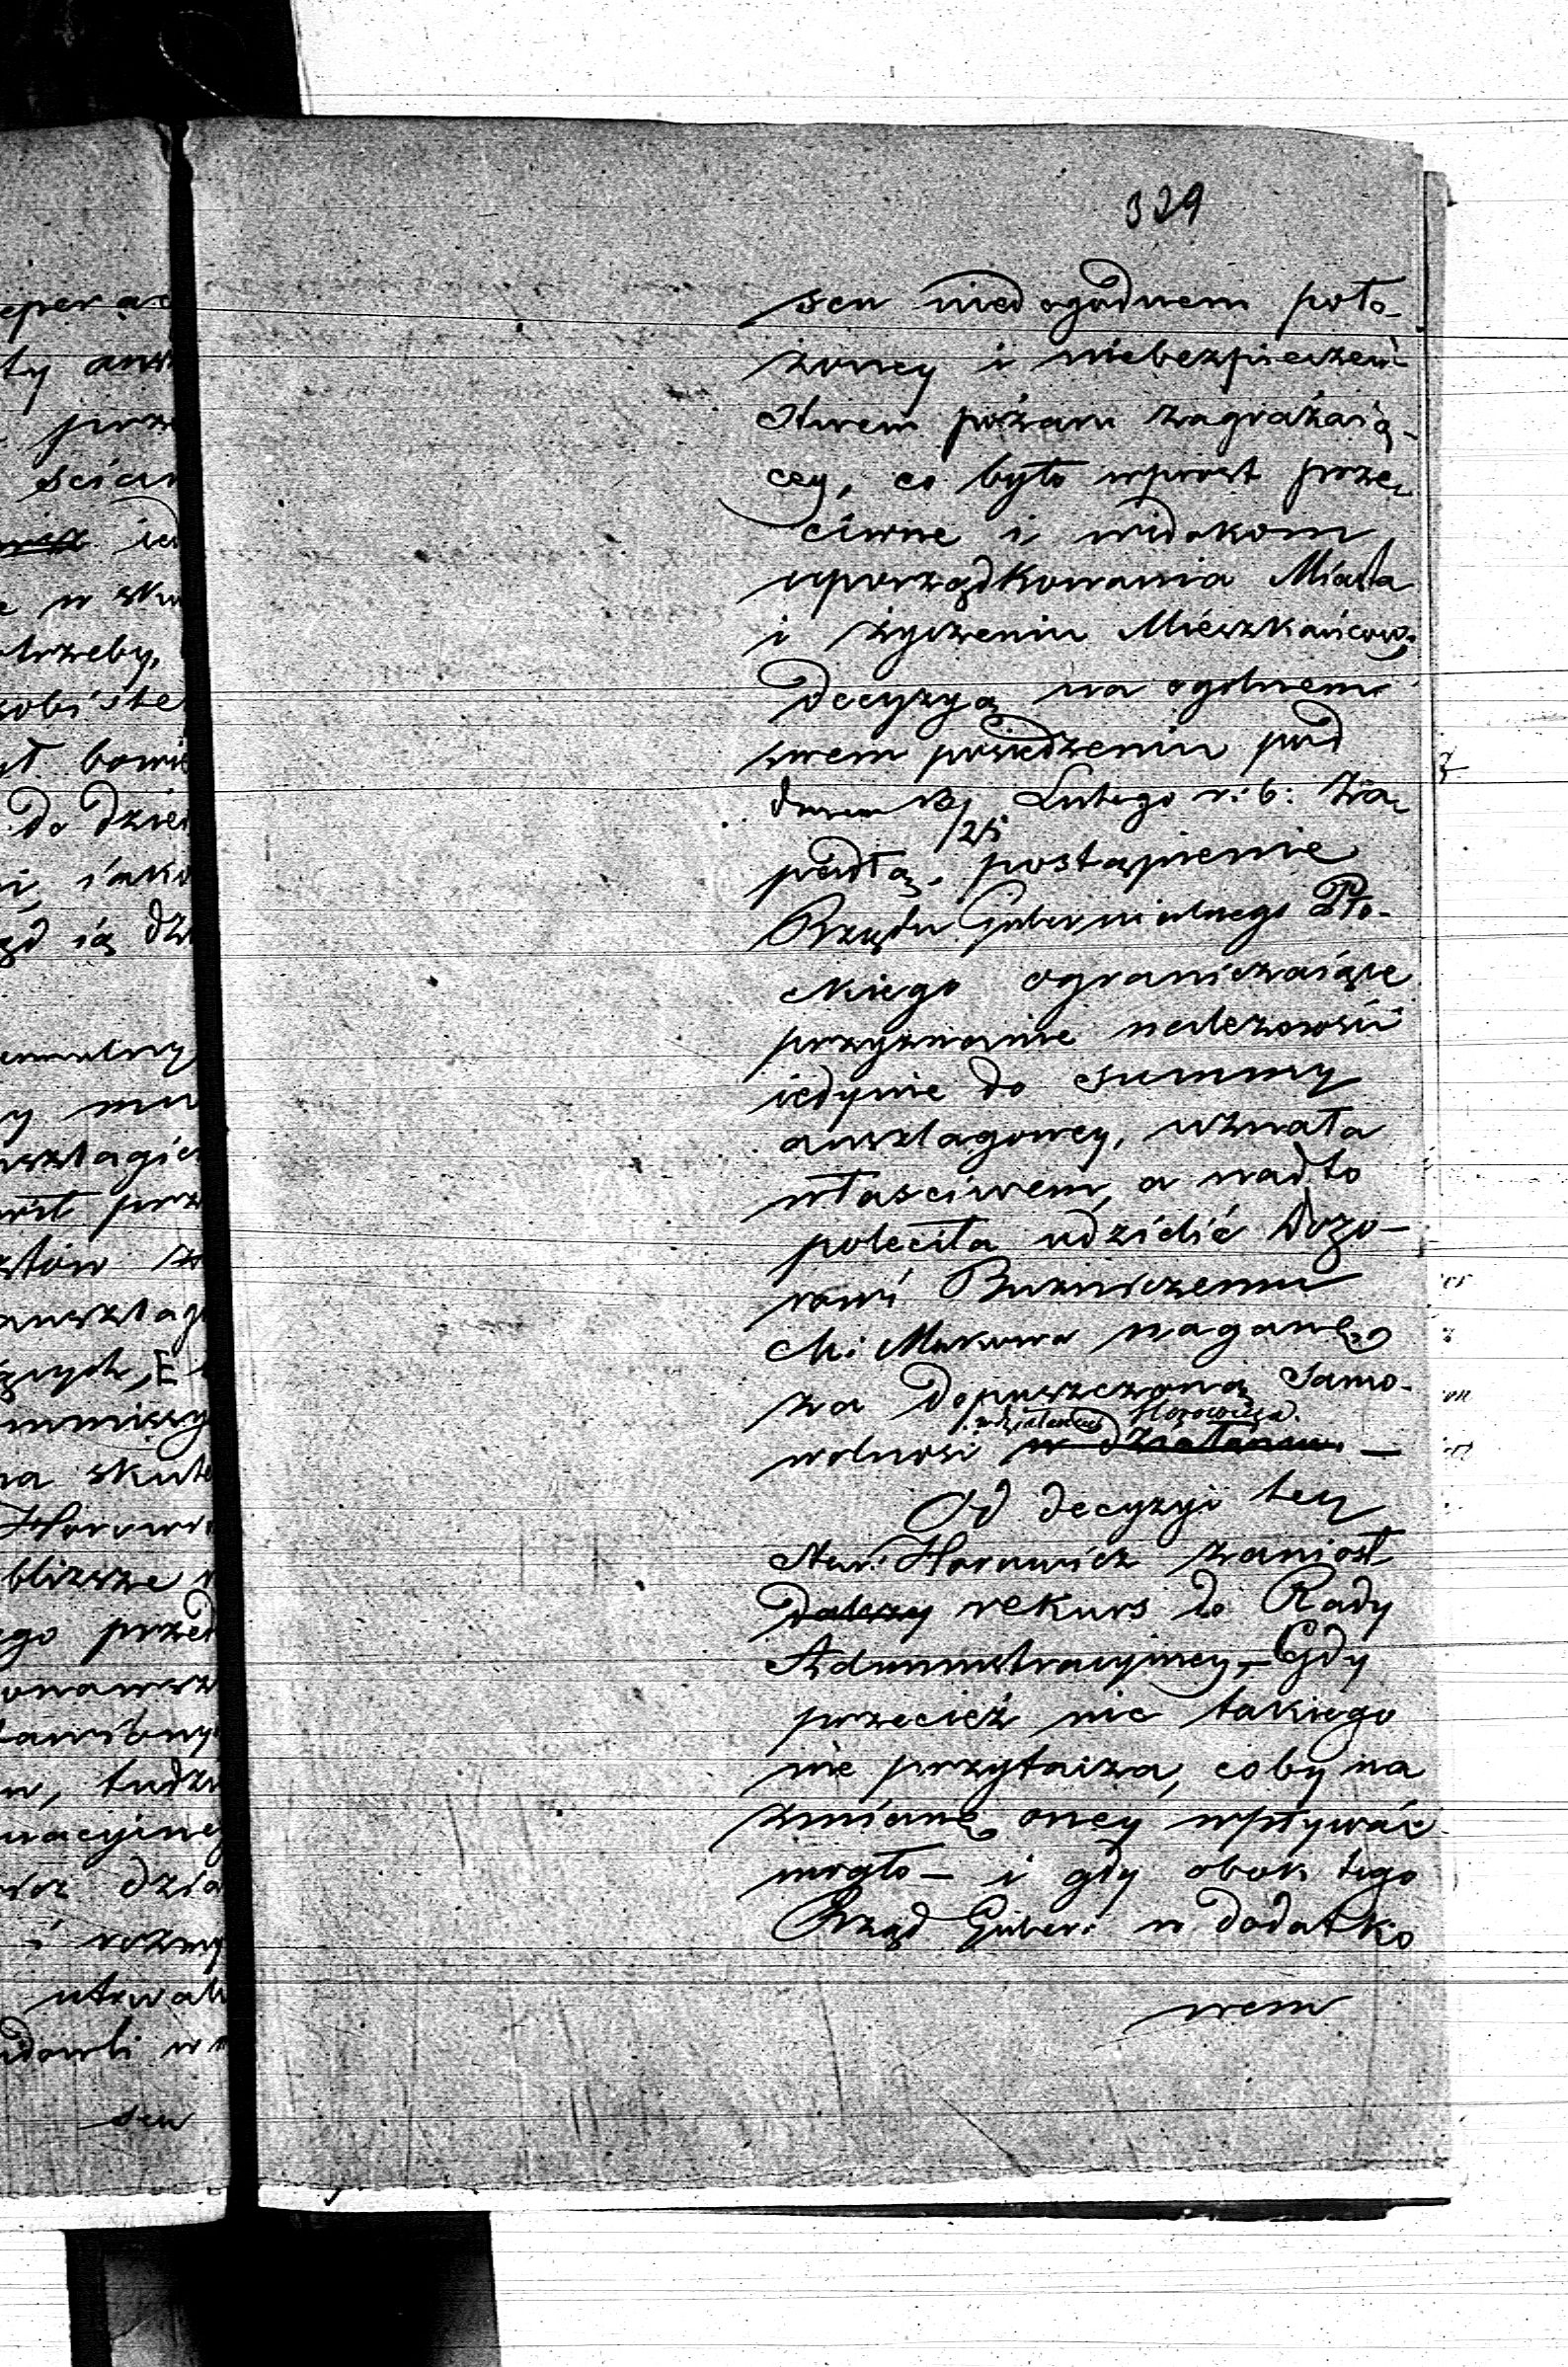 329
scu niedogodnem poło-
żoney i niebezpieczeń
stwem pożaru zagrażaią-
cey, co było wprost prze-
ciwne i widokom
uporządkowania Miasta
i życzeniu Mieszkańcow;
decyzyą na ogolnem
swem posiedzeniu pod
dniem 13/25 Lutego r: b: za-
padłą, postąpienie
Rządu Gubernialnego Pło-
ckiego ograniczaiące
przyznanie należności
iedynie do summy
anszlagowey, uznała
właściwem, a nadto
poleciła udzielić Dozo-
rowi Bużniczemu
M: Makowa naganę
za dopuszczoną samo-
wolność w działaniu Horowicza.
w działaniu —
Od decyzyi tey
Star: Horowicz zaniosł
dalszy rekurs do Rady
Administracyiney, – Gdy
przecież nic takiego
nie przytacza, coby na
zmianę oney wpływać
mogło – i gdy obok tego
Rząd Guber: w dodatko
wem
eperac
ty
prze
ścian
w
trzeby,
sobiste
bowie
do dzie
iako
anszlagi
prz
anszlag
na skute
Horowi
bliższe
go przed
w, tudzi
dzia
i
utrwal
w
scu